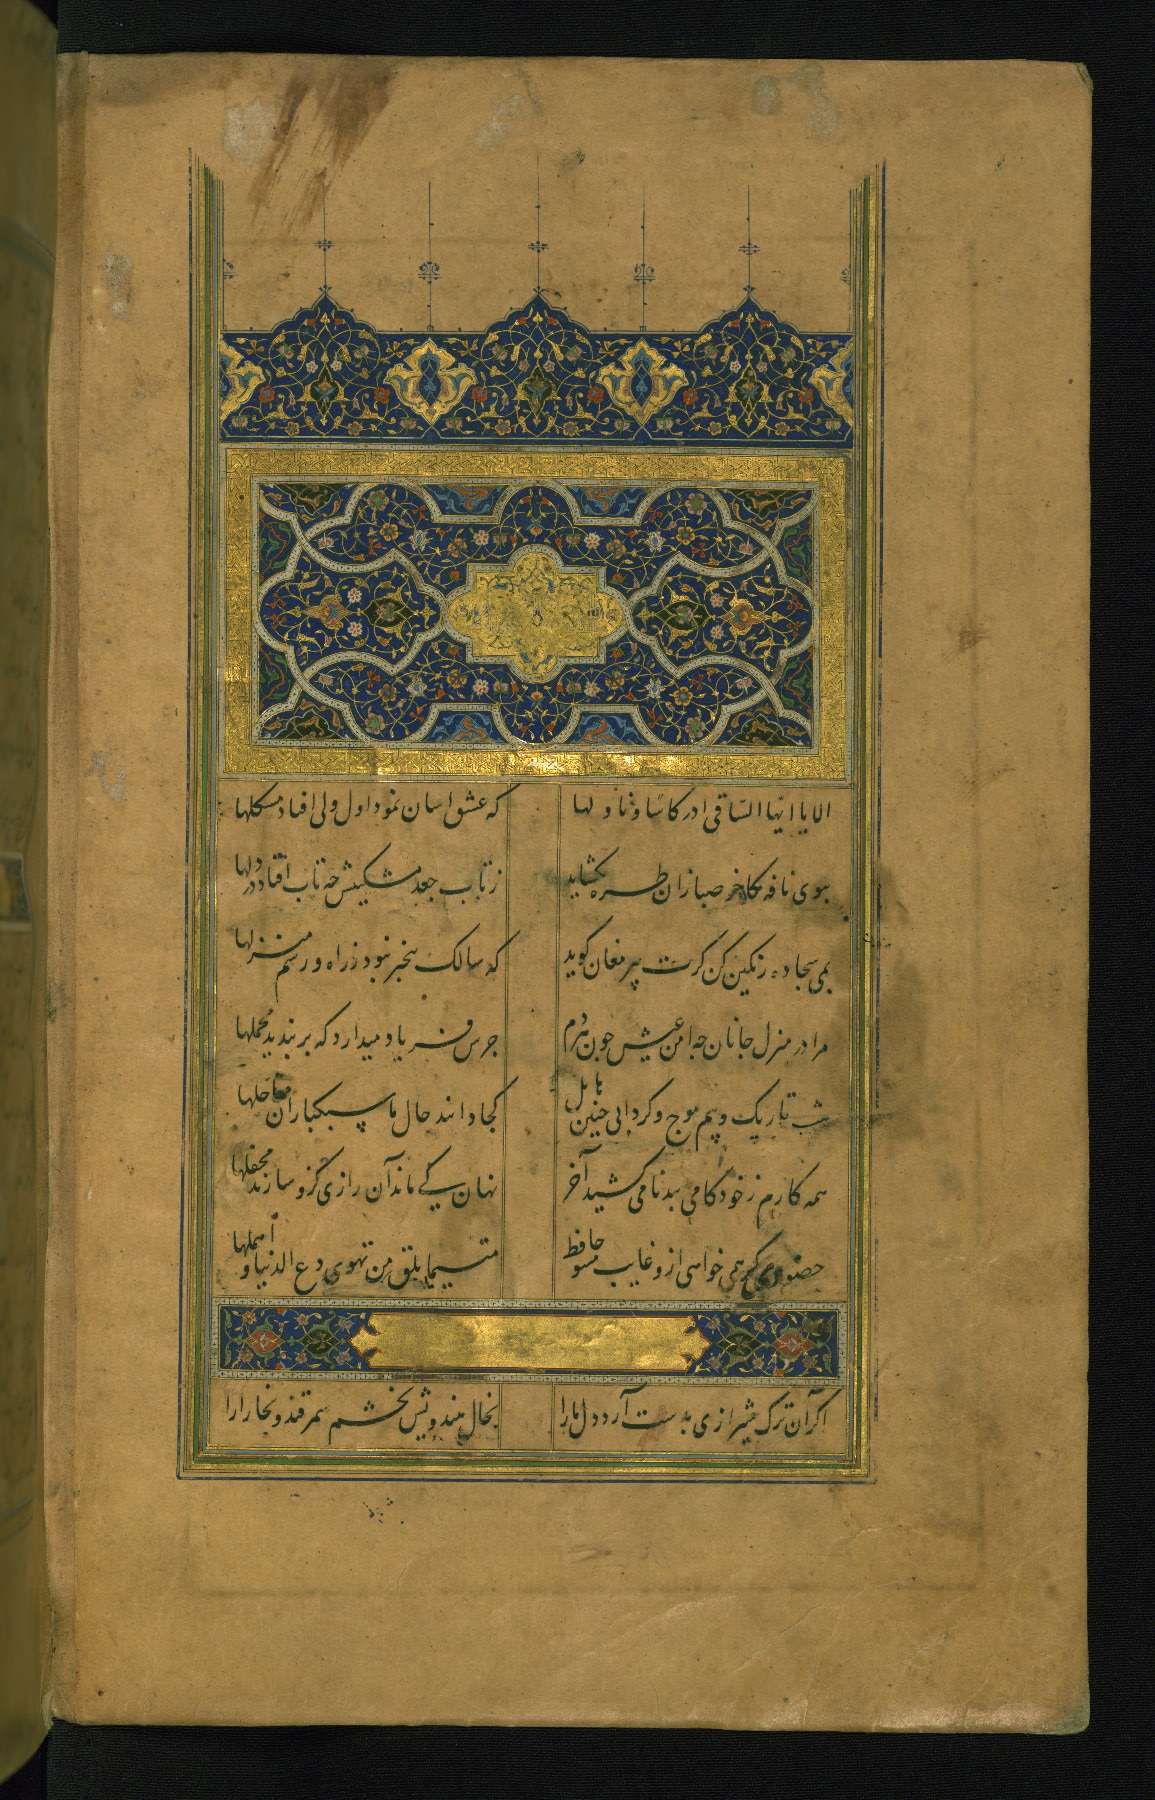 الا یا ایها الساقی ادر کاسا و ناولها که عشق اسان نمود اول ولی افتاد مشکلها
ببوی نافه کاخر صبا زان طره بکشاید ز تاب جعد مشکینش چه تاب افتاد در دلها
بمی سجاده رنکین کن کرت پیر مغان کوید که سالک بیخبر نبود ز راه و رسم منزلها
مرا در منزل جانان چه امن عیش چون هردم جرس فریاد میدارد که بربندید محملها
شب تاریک و بیم موج و کردابی چنین هایل کجا دانند حال ما سبکباران ساحلها
همه کارم ز خود کامی ببدنامی کشید آخر نهان کی ماند آن رازی کزو سازند محفلها
حضوری کر همی خواهی ازو غایب مشو حافظ متی ما تلق من تهوی دع الدنیا و اهملها
اکر آن ترک شیرازی بدست آرد دل ما را بخال هندویش بخشم سمرقند و بخارا را